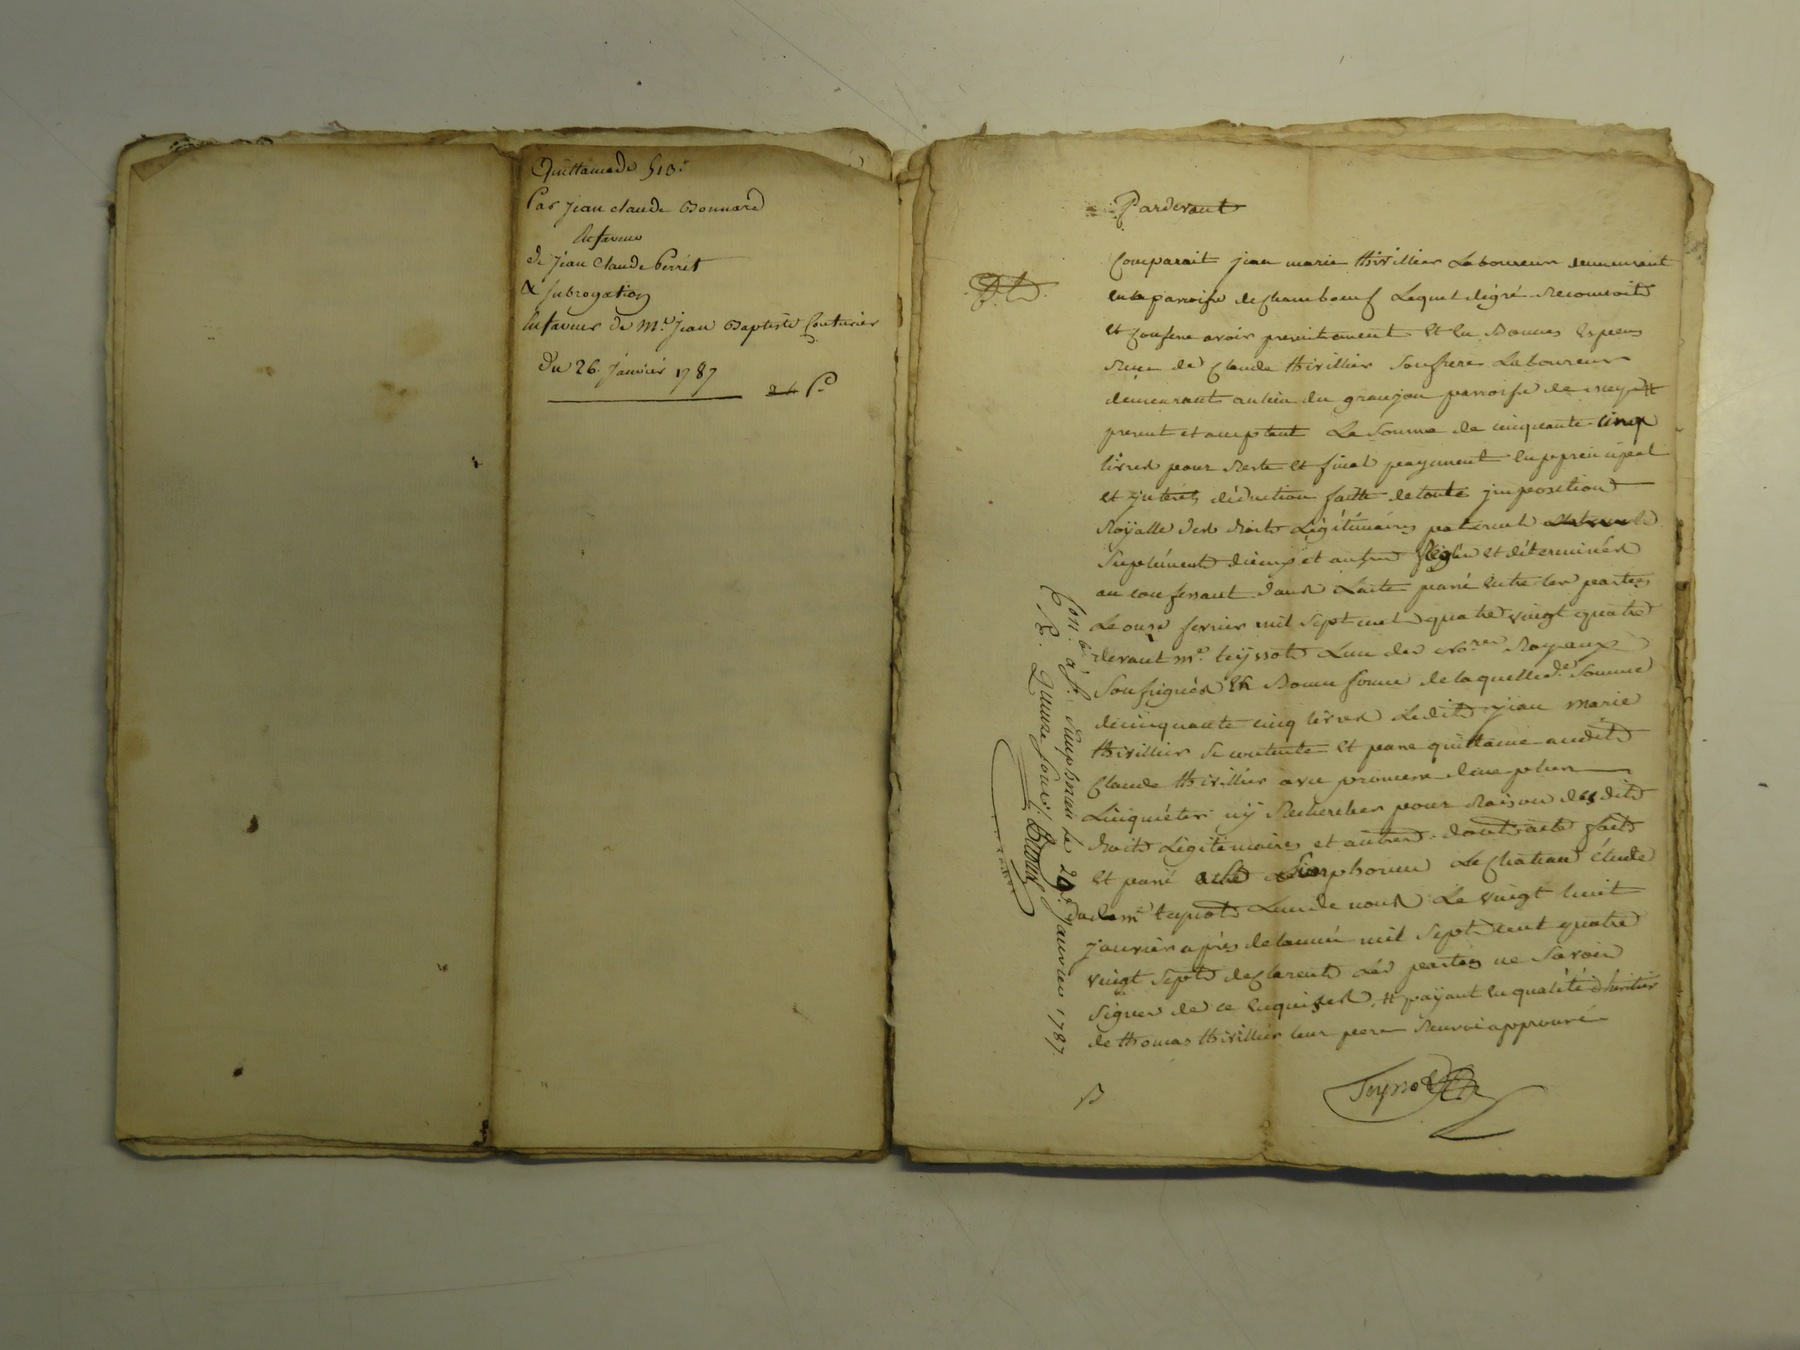 Quittance de 513.
Par Jean Claude Bonnard
En faveur
de Jean Claude Perret
& subrogation
En faveur de Me. Jean Baptiste Couturier
Du 26. Janvier 1787
Pardevant
Comparait jean marie thivillier Laboureur demeurant
en la parroise de Chambœuf Lequel de gré Reconnoit
et confesse avoir presentement et en Bonnes Especes
Reçu de Claude thivillier Son frere Laboureur
demeurant au lieu du granjon parroise de #
present et acceptant La Somme de cinquante cinq
livres pour Reste et final payement en principal
et interets déduction faitte de toute imposition
Royalle des droits Légitimaires paternels
Supplément d'iceux et autres Réglés et déterminés
au confessant dans L'acte passé entre les parties
Le onze fevrier mil Sept cent quatre vingt quatre
devant me. teyssot L'un des Nores. Royaux
Soussignés En Bonne forme de laquelle de. Somme
de cinquante cinq livres Ledit jean marie
thivillier Se contente et passe quittance audit
Claude thivillier avec promesse de ne plus
L'inquiéter ny Rechercher pour Raison desdits
droits Légitimaires et autres dont acte fait
et passé à St Simphorien Le Chateau étude
dudit me teyssot L'un de nous Le vingt huit
janvier après de l'année mil Sept cent quatre
vingt Sept declarent Les parties ne Savoir
Signer de ce Enquises, # payant en qualité d'heritier
de thomas thivillier leur pere Renvoi approuvé
Teyssot
Con. à St. Simphorien le 29. Janvier 1787
R. Quinze sous.